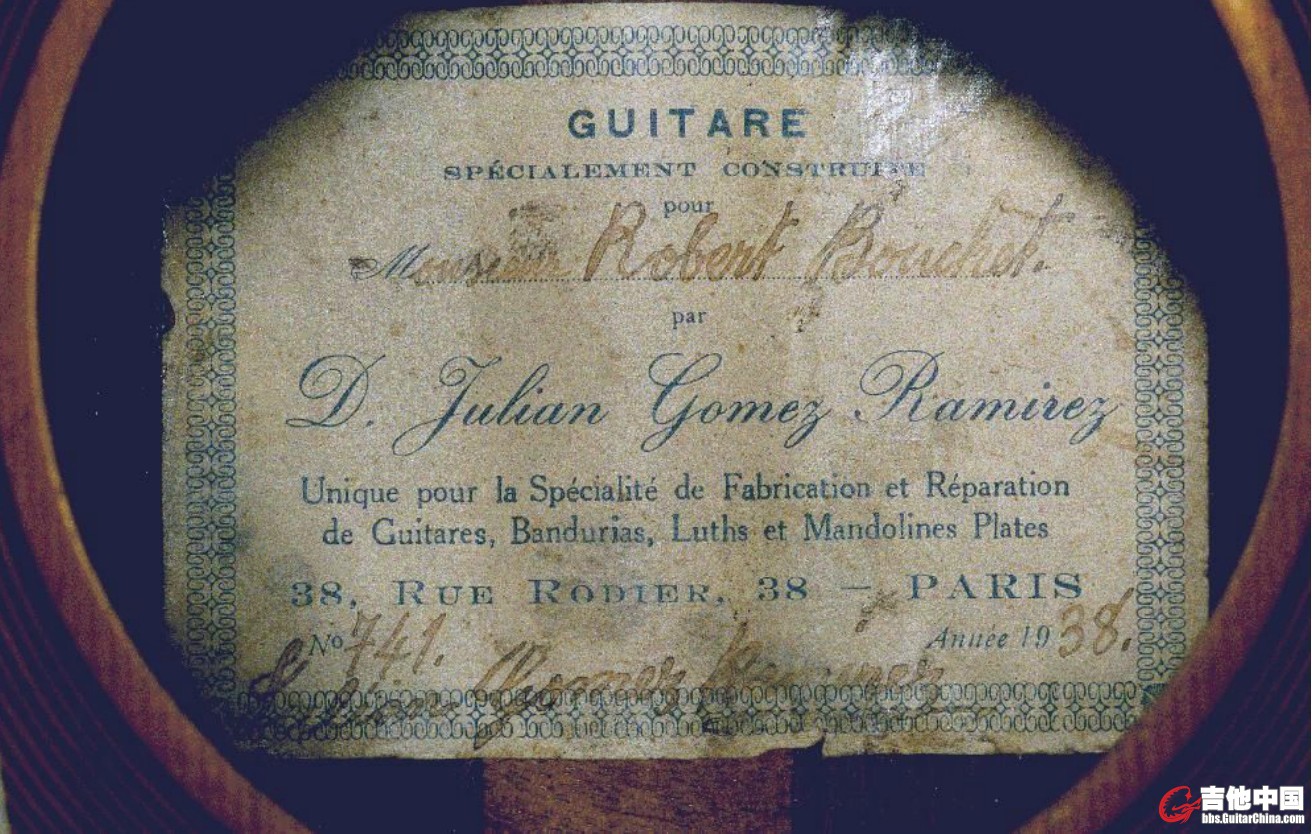 GUITARE
SPÉCIALEMENT CONSTRUITE
pour
Monsieur Robert Bouchet.
par
D. Julian Gomez Ramirez
Unique pour la Spécialité de Fabrication et Réparation
de Guitares, Bandurias, Luths et Mandolines Plates
38, RUE RODIER, 38 — PARIS
Nº 741. Année 1938.
Julian Gomez Ramirez
吉他中国
bbs.GuitarChina.com